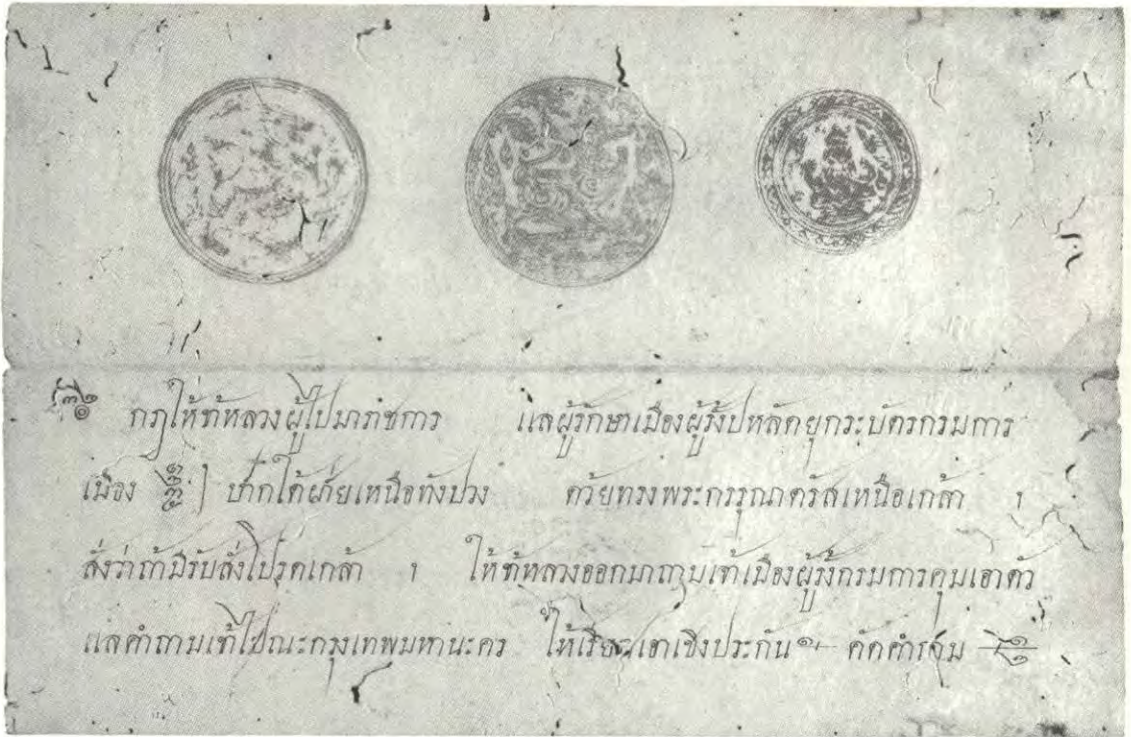 กฎให้ข้าหลวงผู้ไปมาราชการ แลผู้รักษาเมืองผู้รั้งปหลัดยุกระบัตรกรมการ
เมือง ปากใต้ฝ่ายเหนือทังปวง ด้วยทรงพระกรรุณาตรัสเหนือเกล้า ฯ
สั่งว่าถ้ามีรับสั่งโปรดเกล้า ฯ ให้ข้าหลวงออกมาถามเจ้าเมืองผู้รั้งกรมการคุมเอาตัว
แลคำถามเข้าไปณะกรุงเทพมหานะคร ให้เรียกเอาเชิงประกัน